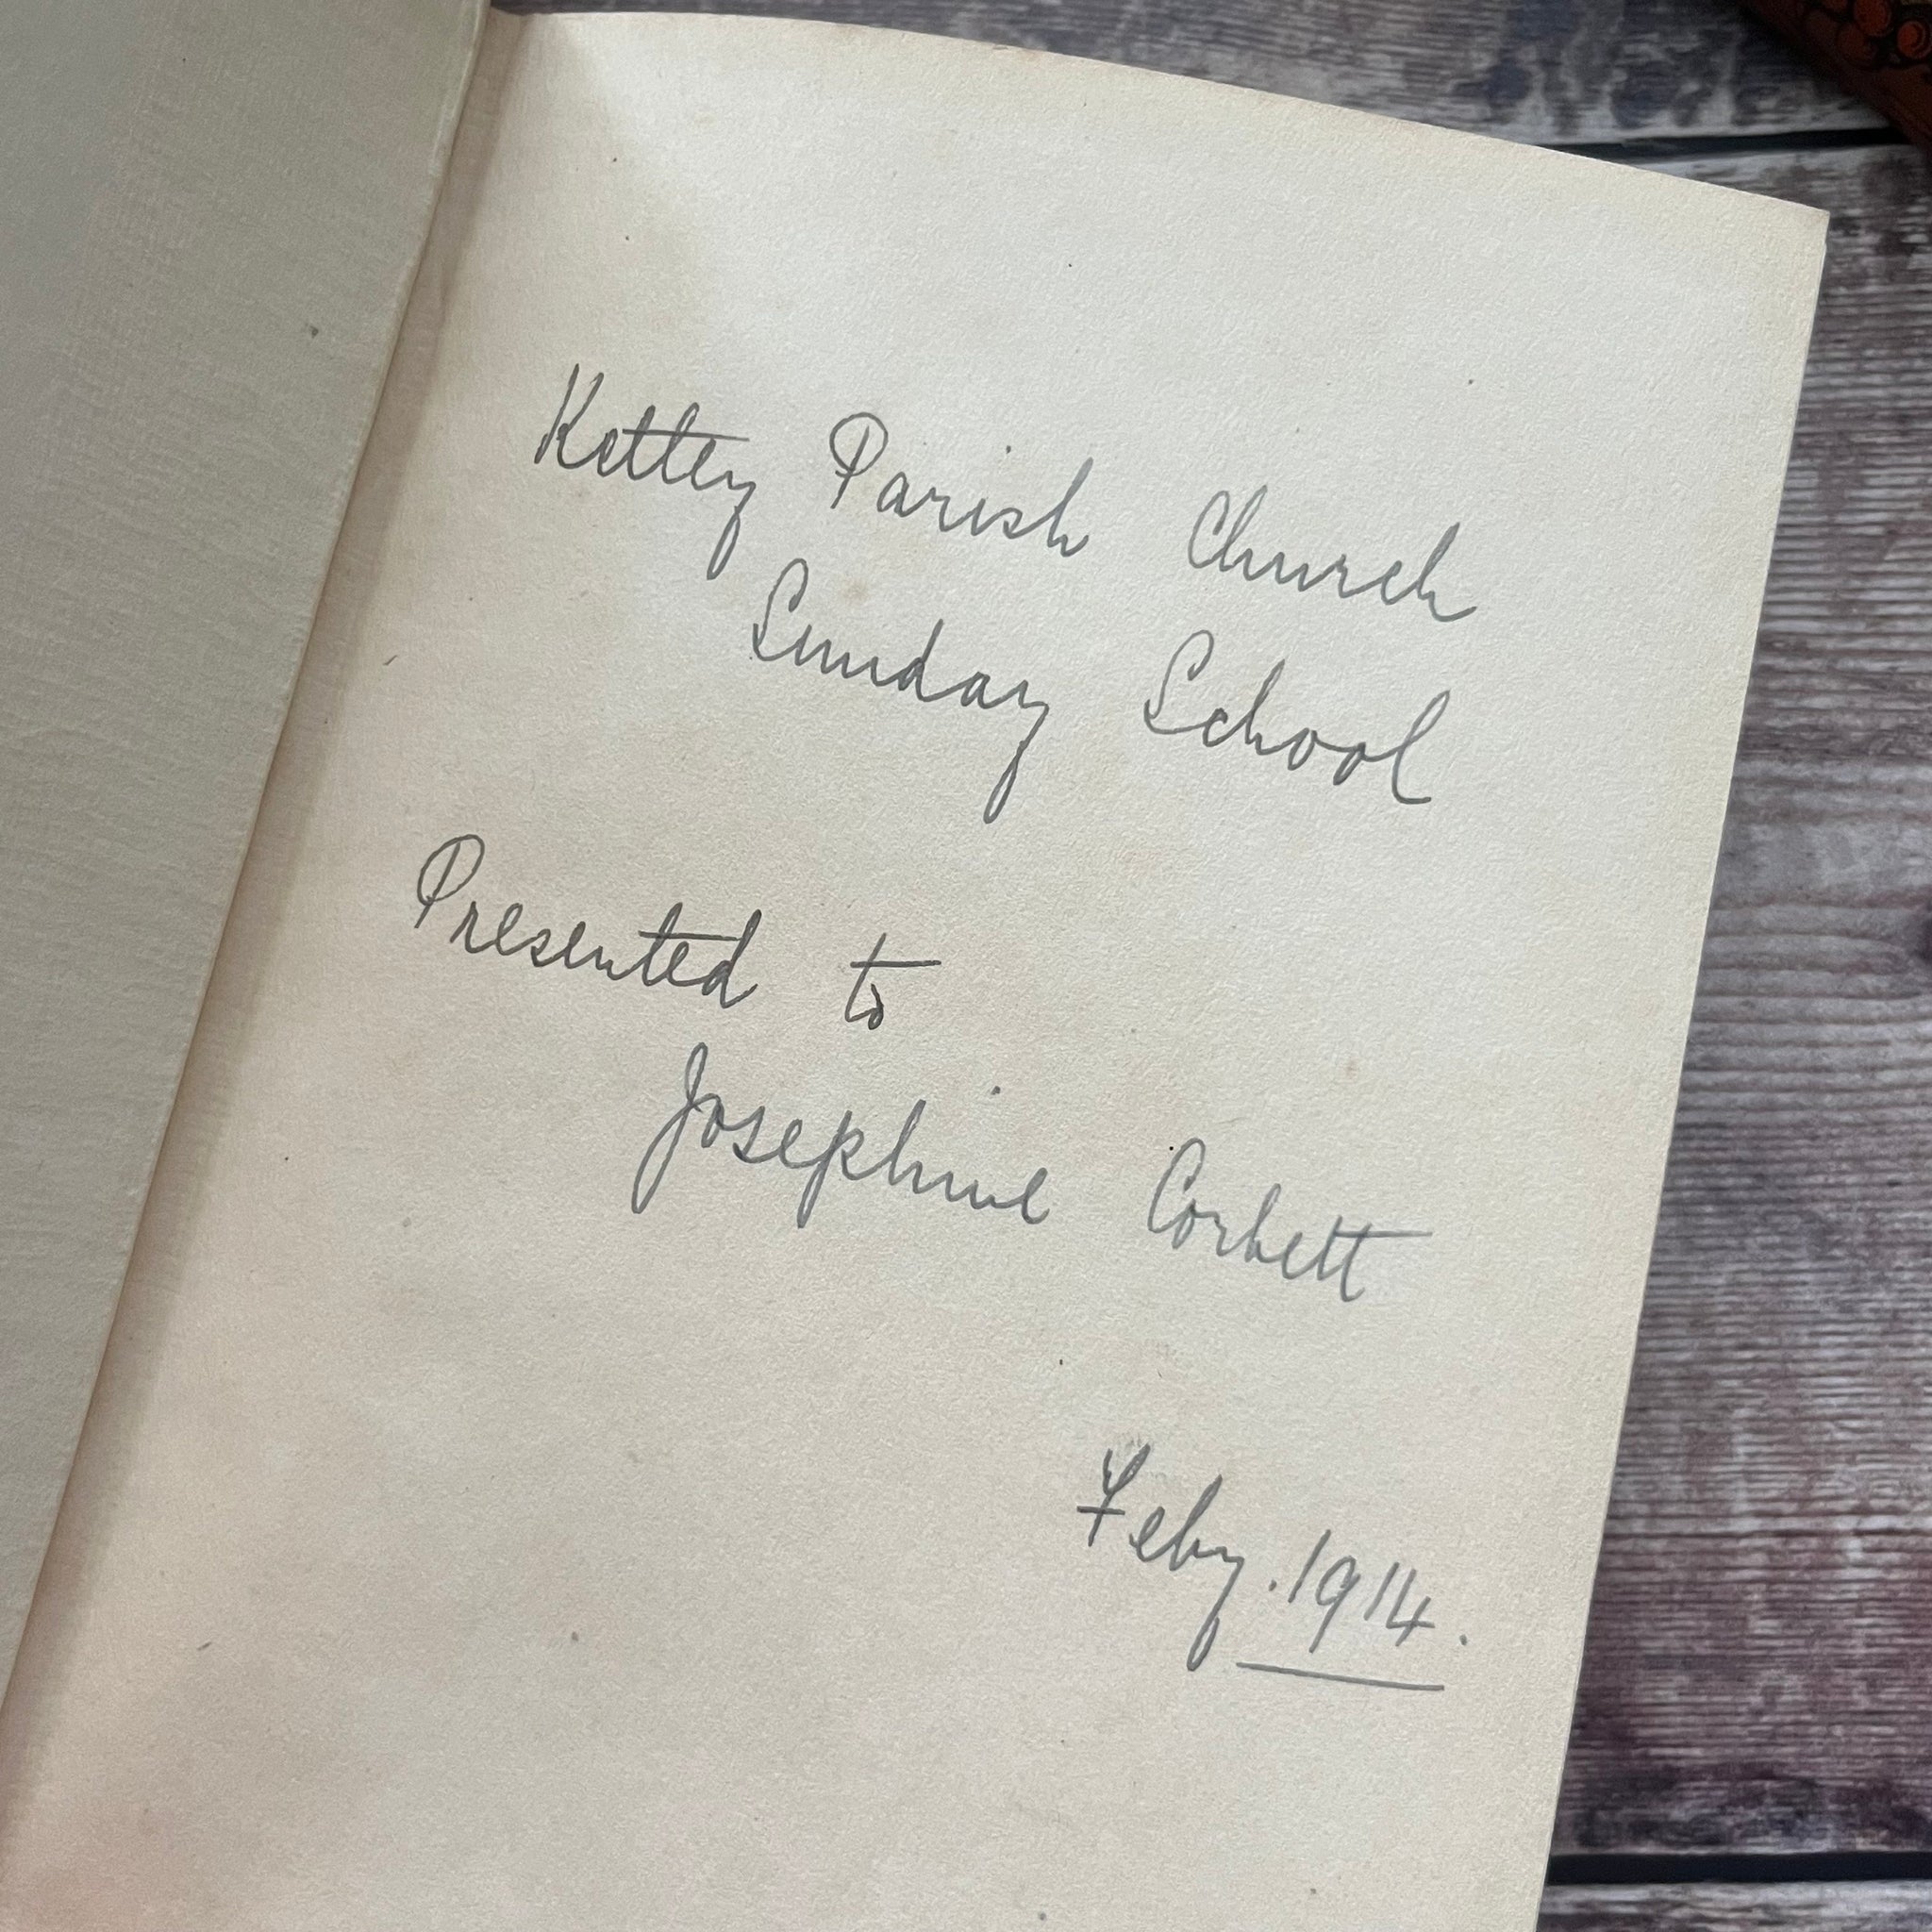 Ketley Parish Church
Sunday School
Presented to
Josephine Corbett
Feby. 1914.